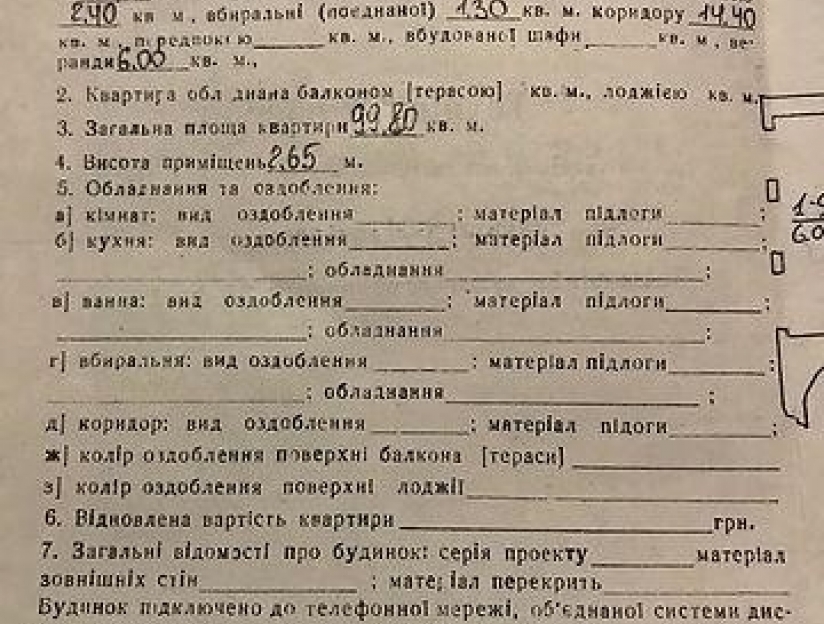 2,40 кв м, вбиральні (поєднаної) 1,30 кв. м. коридору 14,40
кв. м, передпокою______ кв. м., вбудованої шафи______кв. м, ве-
ранди 6.00 кв. м.,
2. Квартира обладнана балконом [терасою] кв. м., лоджією кв. м.
3. Загальна площа квартири 99,80 кв. м.
4. Висота приміщень 2,65 м.
5. Обладнання та оздоблення:
а) кімнат: вид оздоблення__________; матеріал підлоги________;
б) кухня: вид оздоблення__________; матеріал підлоги________;
____________________; обладнання____________________;
в) ванна: вид оздоблення__________; матеріал підлоги________;
____________________; обладнання____________________;
г) вбиральня: вид оздоблення________; матеріал підлоги________;
____________________; обладнання____________________;
д) коридор: вид оздоблення________; матеріал підоги________;
ж) колір оздоблення поверхні балкона [тераси]________________
з) колір оздоблення поверхні лоджії________________________
6. Відновлена вартість квартири________________________грн.
7. Загальні відомості про будинок: серія проекту________матеріал
зовнішніх стін____________; матеріал перекрить____________
Будинок підключено до телефонної мережі, об'єднаної системи дис-